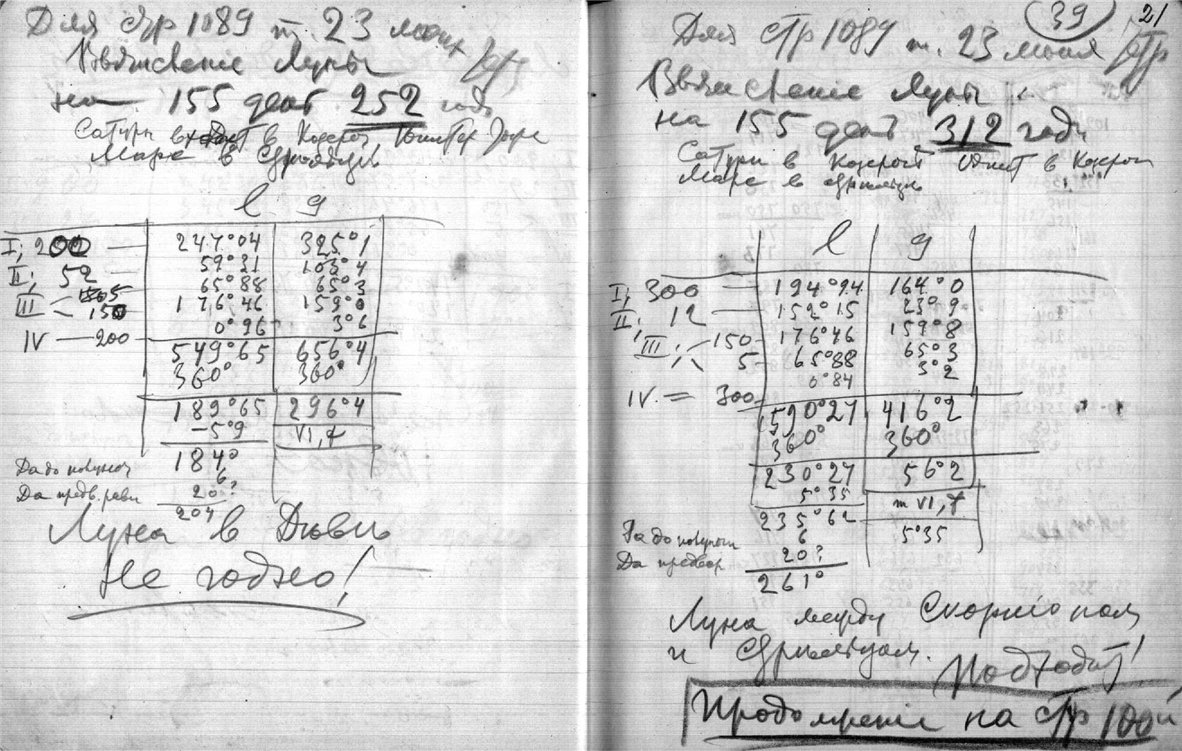 Для стр 1089 т. 23 моих
Вычисление Луны
на 155 день 252 года
Сатурн входит в Козерог Юпитер
Марс в Стрельце
l g
I; 200 — 247°04 325°1
II; 52 — 59°21 103°4
65°88 65°3
III 150 176°46 159°0
0°96 3°6
IV — 200
549°65 656°4
360° 360°
189°65 296°4
-5°9 VI, 7
184°
Да до полуноч 6
Да предв. равн 20?
204
Луна в Деви
Не годно!
39 21
Для стр 1089 т. 23 моих
Вычисление Луны
на 155 день 312 года
Сатурн в Козероге Юпит в Козерог
Марс в Стрельце
l g
I; 300 — 194°94 164°0
II; 12 — 152°15 23°9
III; 150 — 176°46 159°8
5 — 65°88 65°3
0°84 3°2
IV = 300
590°27 416°2
360° 360°
230°27 56°2
5°35 т VI, 7
235°62 5°35
Да до полуночи 6
Да предвор 20?
261°
Луна между Скорпионом
и Стрельцом. Подходит!
Продолжение на стр 100й